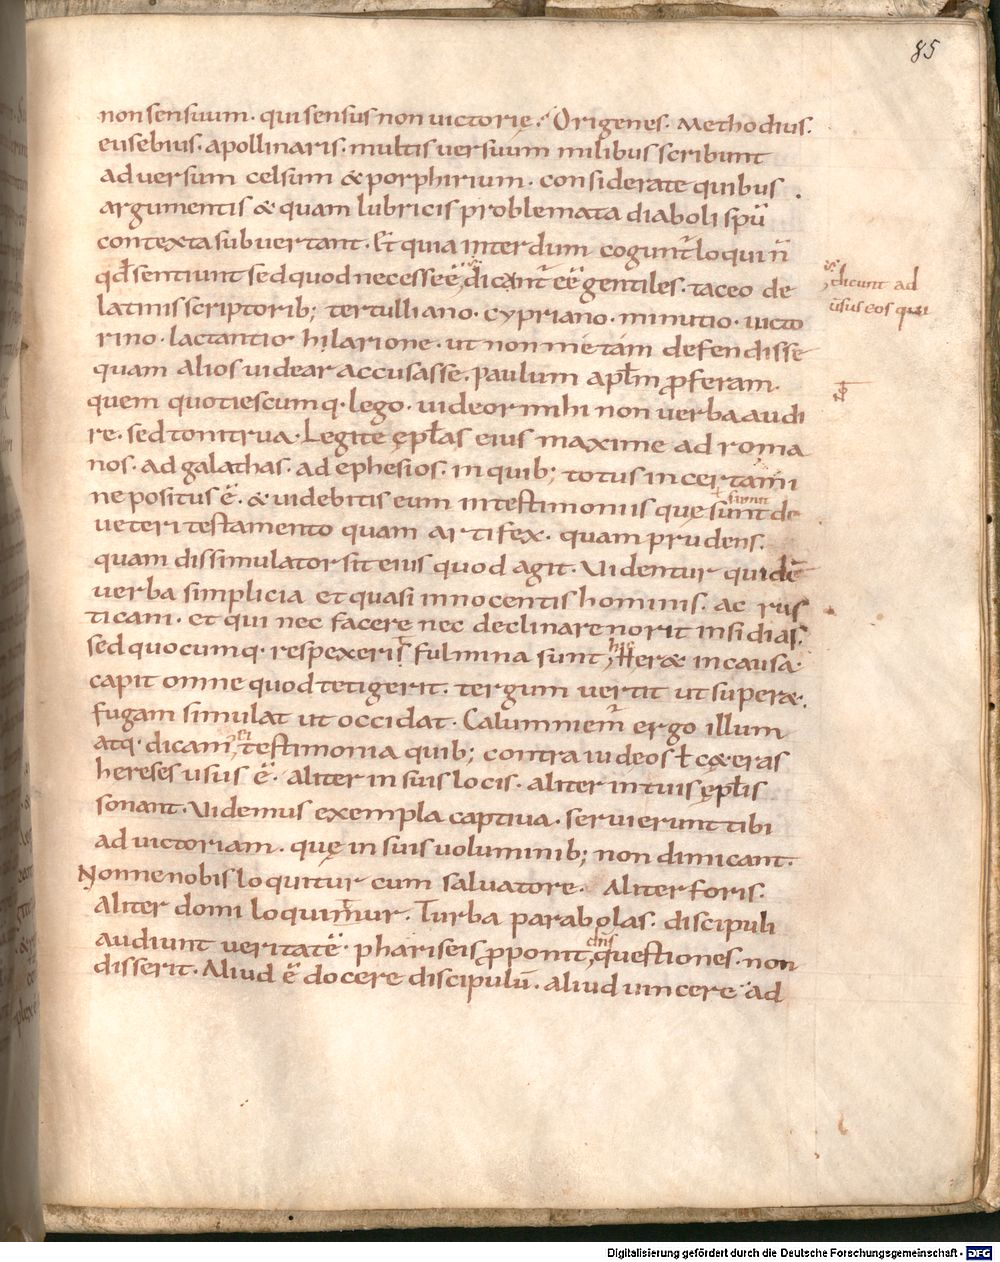 85
non sensuum · qui sensus non uictorię · Origenes · Methodius ·
eusebius · apollinaris · multis uersuum milibus scribunt
aduersum celsum & porphirium · considerate quibus ·
argumentis & quam lubricis problemata diaboli spū
contexta subuertant · Et quia interdum cogunt̃ loqui ñ
qđ sentiunt sed quod necesse ē̈ dicant̃ eē gentiles · taceo de
dicunt ad
usus eos qui
latinis scriptorib; tertulliano · cypriano · minutio · uicto
rino · lactantio · hilarione · ut non me tam defendisse
quam alios uidear accusasse · Paulum apl̃m ꝓferam ·
quem quotiescumq · lego · uideor mihi non uerba audi
re · sed tonitrua · Legite ępl̃as eius maxime ad roma
nos · ad galathas · ad ephesios · in quib; totus in certami
ne positus ē · & uidebitis eum in testimoniis quę sunt de
ueteri testamento quam artifex · quam prudens ·
quam dissimulator sit eius quod agit · Uidentur quidē
uerba simplicia et quasi innocentis hominis · ac rus
ticani · et qui nec facere nec declinare norit insidias ·
sed quocumq · respexeris fulmina sunt, Heræ in causa ·
capit omne quod tetigerit · tergum uertit ut superæ ·
fugam simulat ut occidat · Calumniem̃ ergo illum
atq · dicam ei testimonia quib; contra iudeos ł cæteras
hereses usus ē · aliter in suis locis · aliter in tuis ępl̃is
sonant · Uidemus exempla captiua · seruierunt tibi
ad uictoriam · quę in suis uoluminib; non dimicant ·
Nonne nobis loquitur cum saluatore · Aliter foris ·
Aliter domi loquimur · Turba parabolas · discipuli
audiunt ueritatē · phariseis ꝓponit dn̄s questiones · non
disserit · Aliud ē docere discipulū · aliud uincere ad
Digitalisierung gefördert durch die Deutsche Forschungsgemeinschaft - DFG